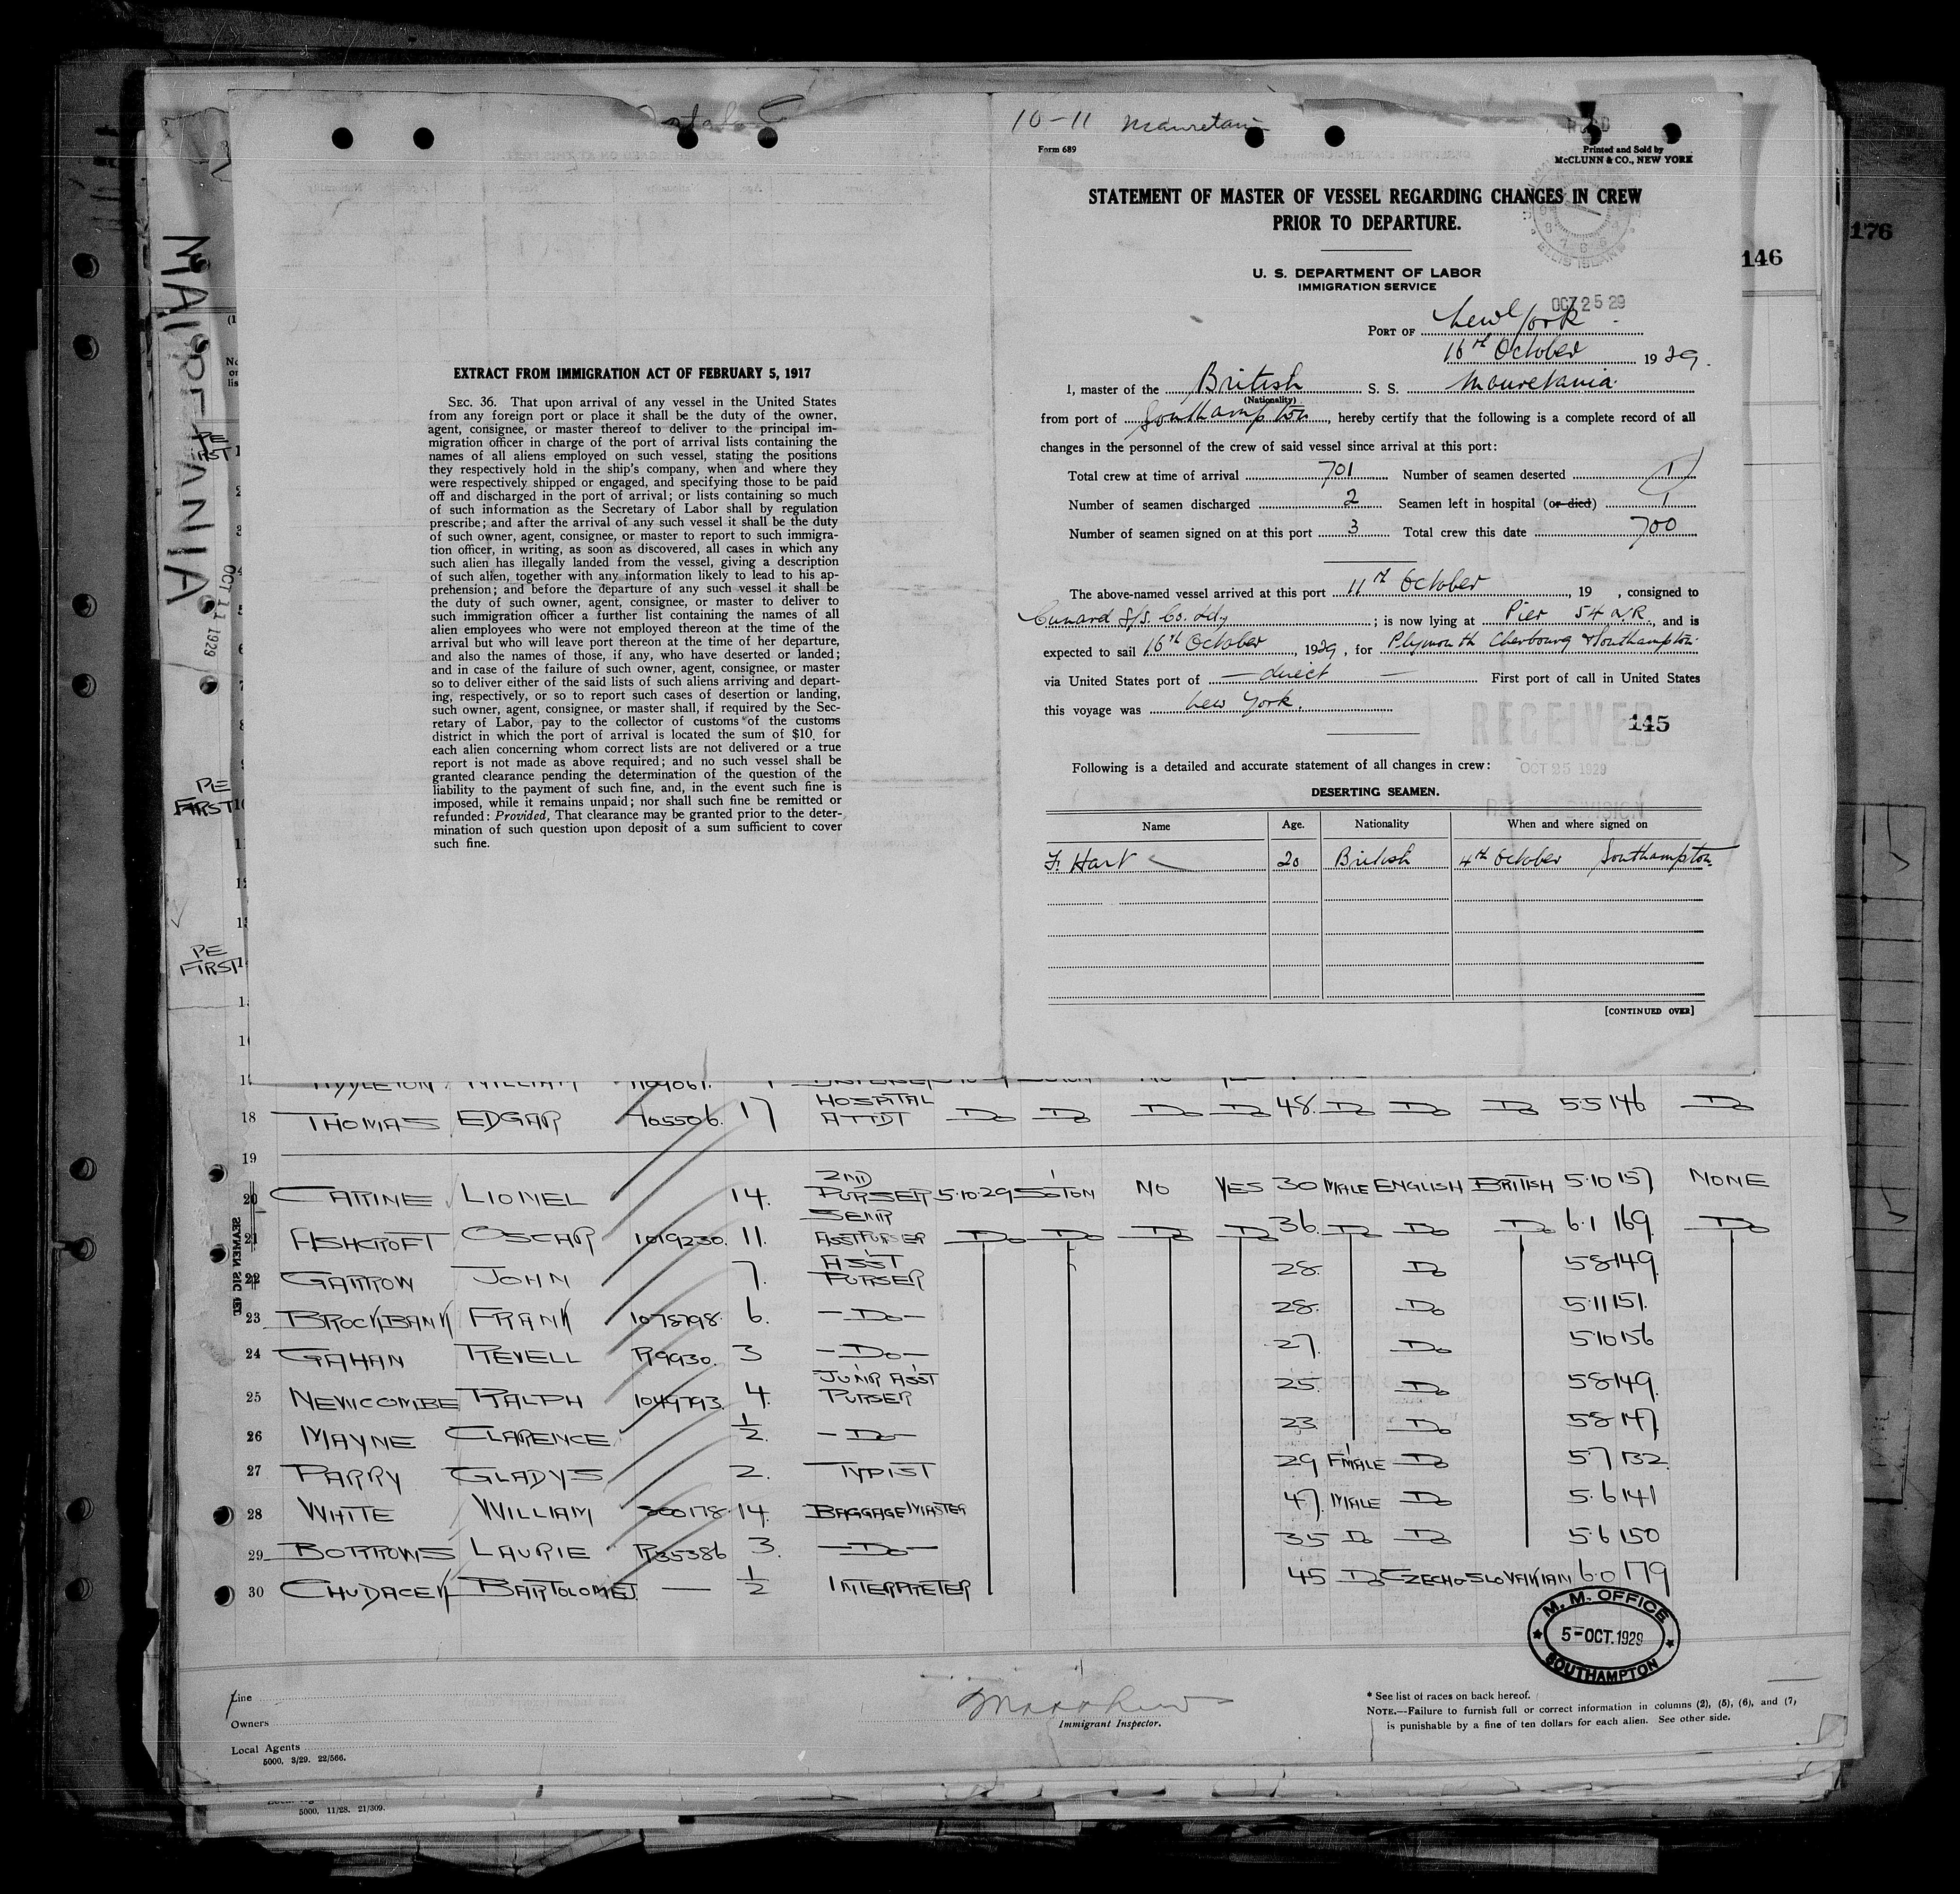 10-11 Mauretania
Form 689
Printed and Sold by
McCLUNN & CO., NEW YORK
STATEMENT OF MASTER OF VESSEL REGARDING CHANGES IN CREW
PRIOR TO DEPARTURE.
ELLIS ISLAND
U. S. DEPARTMENT OF LABOR
IMMIGRATION SERVICE
OCT 25 29
PORT OF New York
16th October 1929.
I, master of the British S. S. Mauretania
(Nationality)
from port of Southampton, hereby certify that the following is a complete record of all
changes in the personnel of the crew of said vessel since arrival at this port:
Total crew at time of arrival 701 Number of seamen deserted 1
Number of seamen discharged 2 Seamen left in hospital (or died) 1
Number of seamen signed on at this port 3 Total crew this date 700
The above-named vessel arrived at this port 11th October, 19 , consigned to
Cunard S/S. Co. Ld; is now lying at Pier 54 N.R., and is
expected to sail 16th October, 1929, for Plymouth Cherbourg & Southampton
via United States port of — direct — First port of call in United States
this voyage was New York.
RECEIVED
145
Following is a detailed and accurate statement of all changes in crew:
OCT 25 1929
DESERTING SEAMEN.
Name Age. Nationality When and where signed on
F. Hart 20 British 4th October Southampton
[CONTINUED OVER]
EXTRACT FROM IMMIGRATION ACT OF FEBRUARY 5, 1917
SEC. 36. That upon arrival of any vessel in the United States
from any foreign port or place it shall be the duty of the owner,
agent, consignee, or master thereof to deliver to the principal im-
migration officer in charge of the port of arrival lists containing the
names of all aliens employed on such vessel, stating the positions
they respectively hold in the ship's company, when and where they
were respectively shipped or engaged, and specifying those to be paid
off and discharged in the port of arrival; or lists containing so much
of such information as the Secretary of Labor shall by regulation
prescribe; and after the arrival of any such vessel it shall be the duty
of such owner, agent, consignee, or master to report to such immigra-
tion officer, in writing, as soon as discovered, all cases in which any
such alien has illegally landed from the vessel, giving a description
of such alien, together with any information likely to lead to his ap-
prehension; and before the departure of any such vessel it shall be
the duty of such owner, agent, consignee, or master to deliver to
such immigration officer a further list containing the names of all
alien employees who were not employed thereon at the time of the
arrival but who will leave port thereon at the time of her departure,
and also the names of those, if any, who have deserted or landed;
and in case of the failure of such owner, agent, consignee, or master
so to deliver either of the said lists of such aliens arriving and depart-
ing, respectively, or so to report such cases of desertion or landing,
such owner, agent, consignee, or master shall, if required by the Sec-
retary of Labor, pay to the collector of customs of the customs
district in which the port of arrival is located the sum of $10 for
each alien concerning whom correct lists are not delivered or a true
report is not made as above required; and no such vessel shall be
granted clearance pending the determination of the question of the
liability to the payment of such fine, and, in the event such fine is
imposed, while it remains unpaid; nor shall such fine be remitted or
refunded: Provided, That clearance may be granted prior to the deter-
mination of such question upon deposit of a sum sufficient to cover
such fine.
146
176
MAURETANIA
OCT 11 1929
PE
FIRST
PE
FIRST
PE
FIRST
18 THOMAS EDGAR 705506. 17 HOSPITAL ATTDT Do Do Do Do 48. Do Do Do 5.5 146 Do
19
20 CARINE LIONEL 14. 2ND PURSER 5.10.29 S'TON NO YES 30 MALE ENGLISH BRITISH 5.10 157 NONE
21 ASHCROFT OSCAR 1019230. 11. SENR ASST PURSER Do Do Do Do 36. Do Do Do 6.1 169. Do
22 GARROW JOHN 7. ASST PURSER 28. Do 5.8 149.
23 BROCKBANK FRANK 1078798. 6. -Do- 28. Do 5.11 151.
24 GAHAN REVELL R9930. 3 -Do- 27. Do 5.10 156
25 NEWCOMBE RALPH 1049793. 4. JUNR ASST PURSER 25. Do 5.8 149.
26 MAYNE CLARENCE 1/2. -Do- 23. Do 5.8 147.
27 PARRY GLADYS 2. TYPIST 29 F'MALE Do 5.7 132.
28 WHITE WILLIAM 800178. 14. BAGGAGE MASTER 47. MALE Do 5.6 141
29 BORROWS LAURIE R35386 3. -Do- 35 Do Do 5.6 150
30 CHUDACEK BARTOLOMEJ. — 1/2 INTERPRETER 45 Do CZECHO SLOVAKIAN 6.0 179
M. M. OFFICE
5-OCT.1929
SOUTHAMPTON
Line
Owners
Local Agents
5000. 3/29. 22/566.
Immigrant Inspector.
* See list of races on back hereof.
NOTE.—Failure to furnish full or correct information in columns (2), (5), (6), and (7),
is punishable by a fine of ten dollars for each alien. See other side.
5000. 11/28. 21/309.